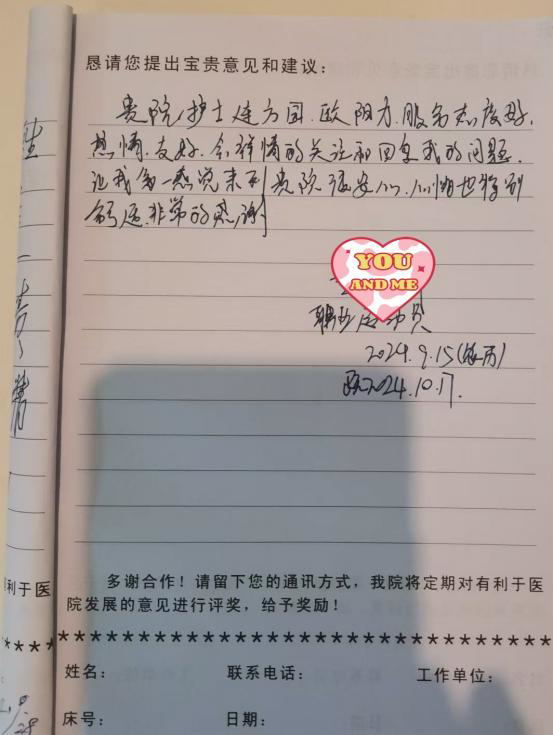 恳请您提出宝贵意见和建议:
贵院护士连方园、欧阳方，服务态度好，
热情、友好，会详情的关注和回复我的问题，
让我第一感觉来到贵院很安心，心情也特别
舒适，非常的感谢
YOU
AND ME
职业运动员
2024.9.15(农历)
2024.10.17.
多谢合作！请留下您的通讯方式，我院将定期对有利于医
利于医
院发展的意见进行评奖，给予奖励！
****
******************************
姓名：
联系电话：
工作单位：
床号：
日期：